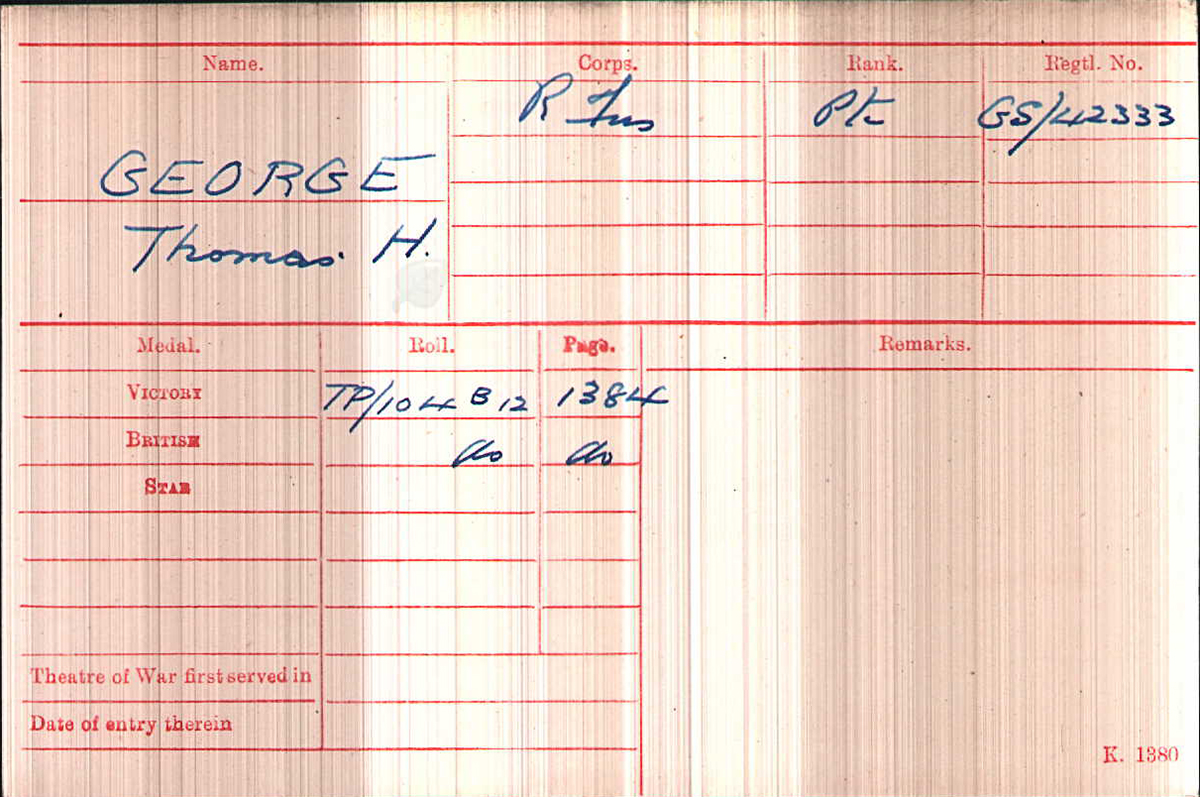 Name. Corps. Rank. Regtl. No.
R Fus Pte GS/42333
GEORGE
Thomas. H.
Medal. Roll. Page. Remarks.
VICTORY TP/104 B 12 1384
BRITISH do do
STAR
Theatre of War first served in
Date of entry therein
K. 1380